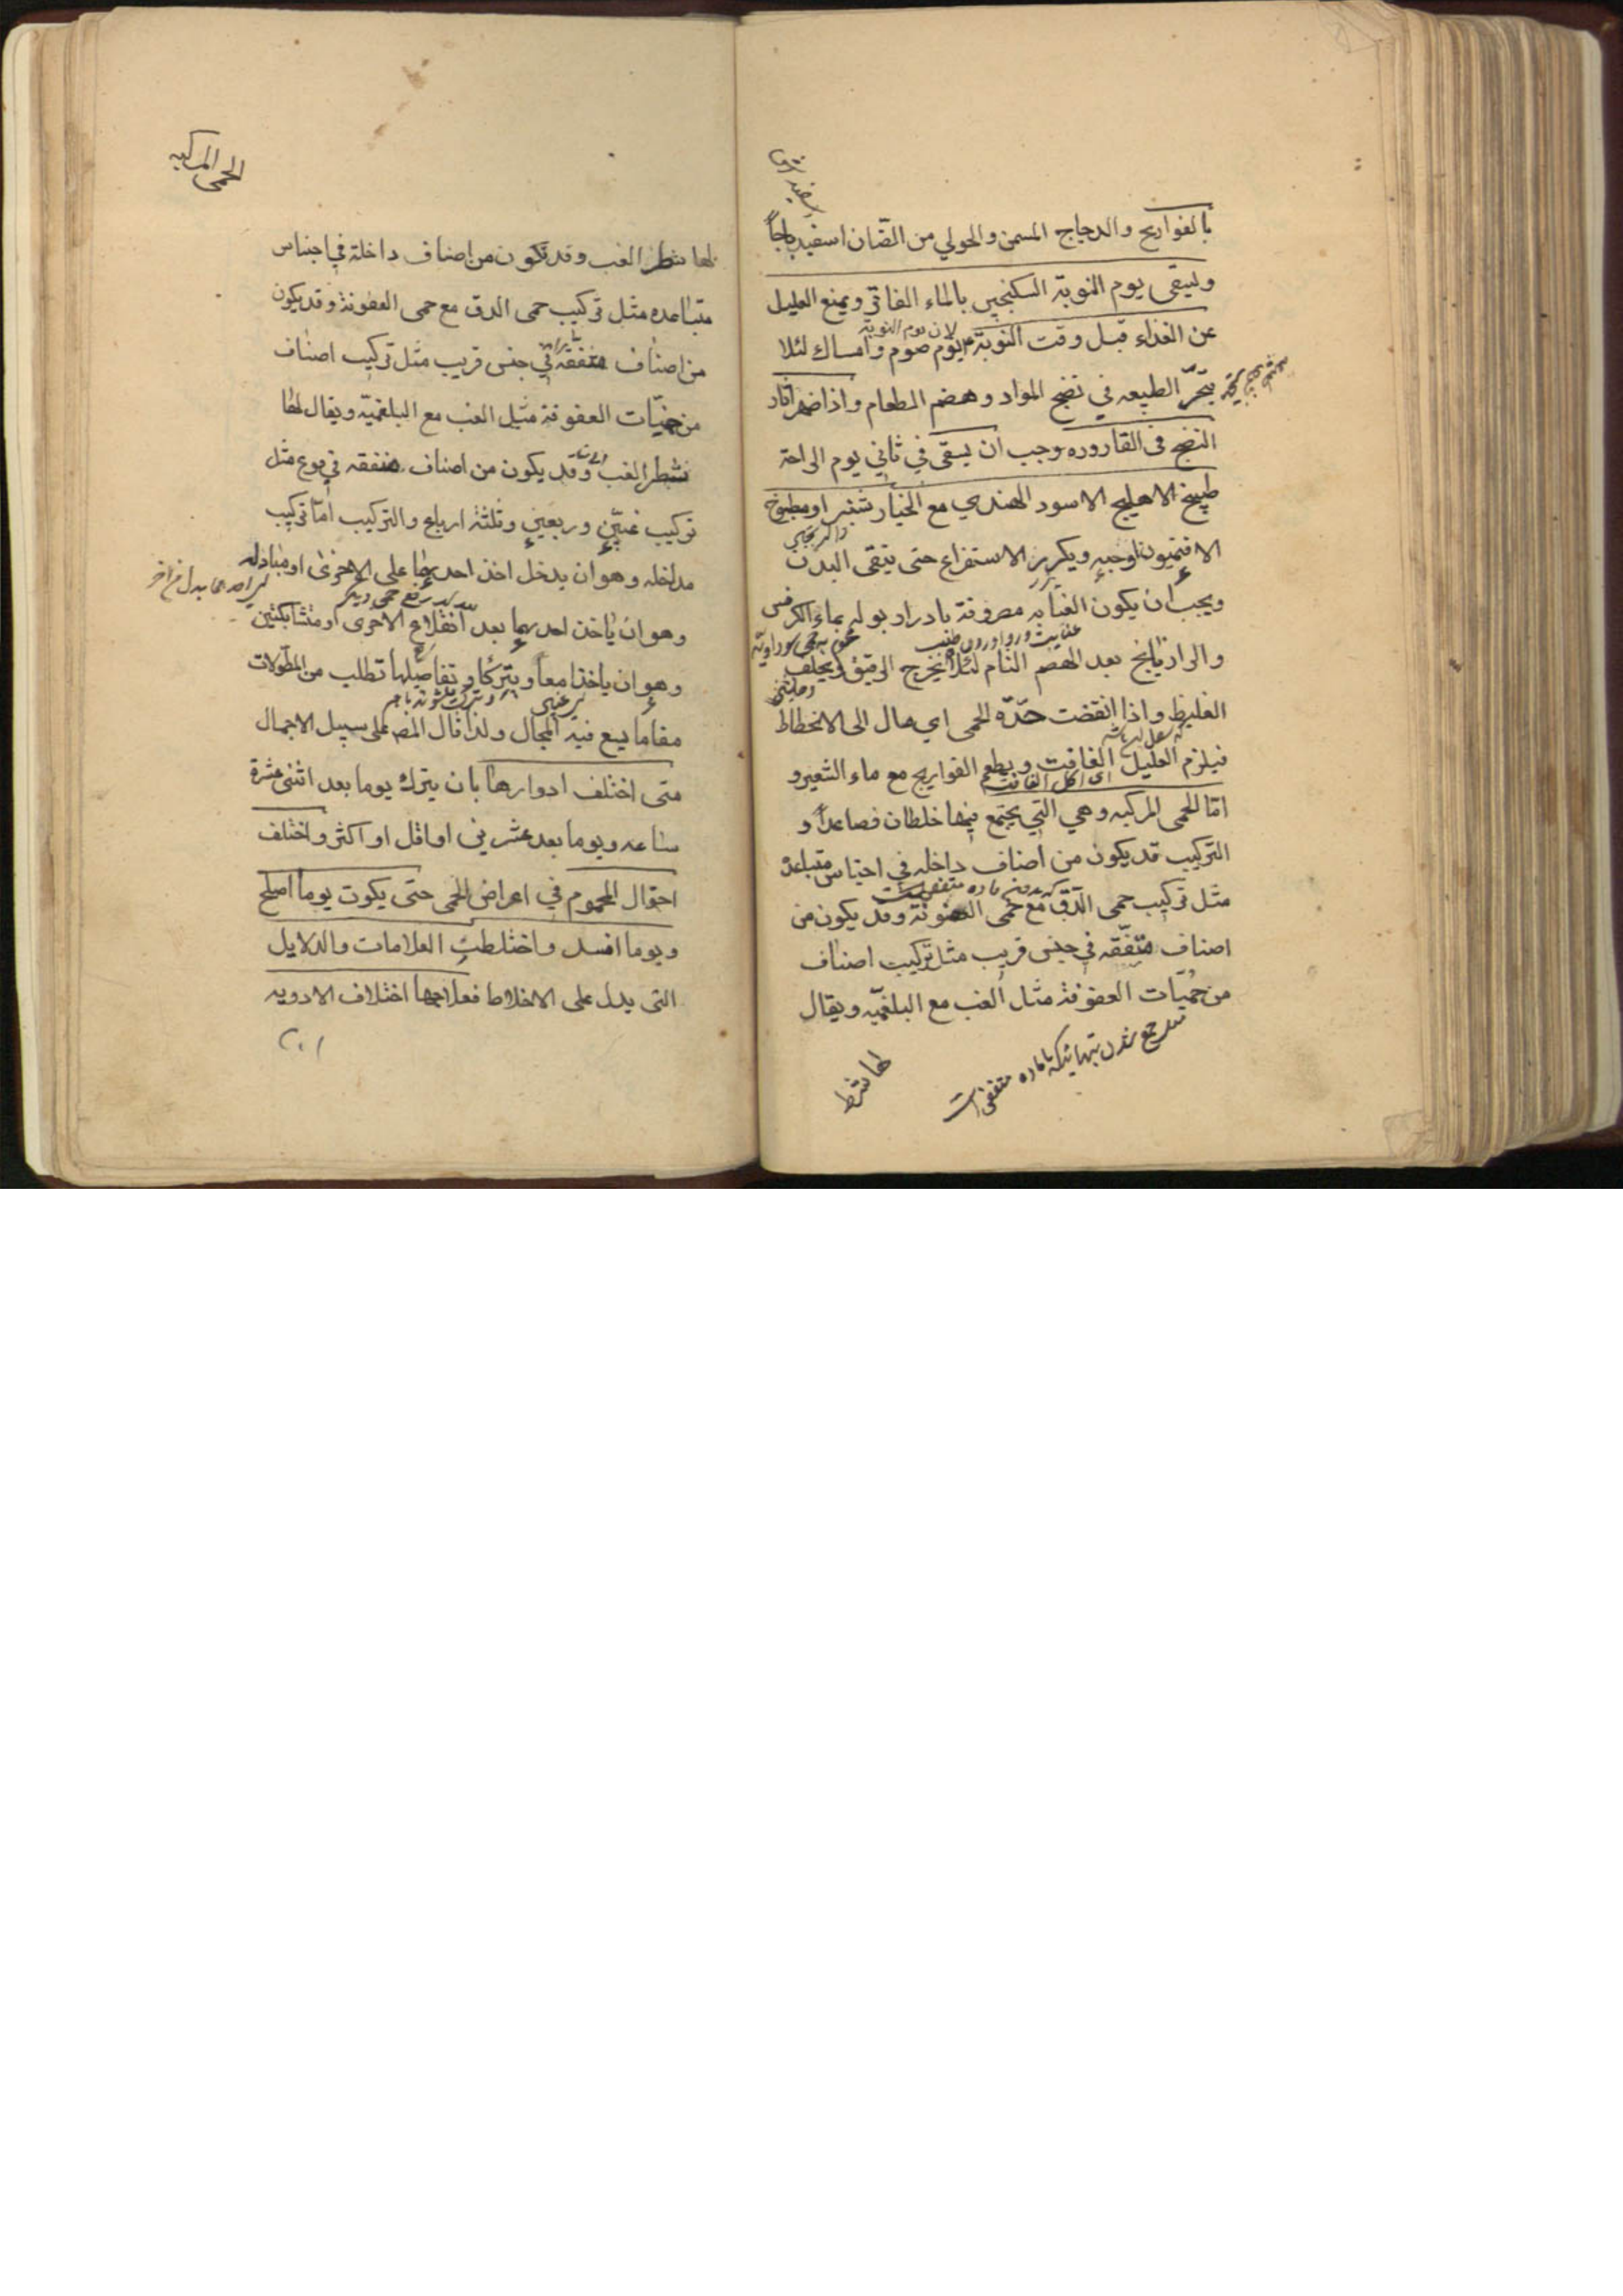 بالفواريج والدجاج المسمن والحولي من الضان اسفيدباجاً
وليسقى يوم النوبة السكنجبين بالماء الفاتر ويمنع العليل
عن الغذاء قبل وقت النوبة يوم صوم وامساك لئلا
لان يوم النوبة
يتحير الطبيعه في نضج المواد وهضم الطعام واذا ظهر اثار
النضج فى القاروره وجب ان يسقى في ثاني يوم الراحة
طبيخ الاهليج الاسود الهندي مع الخيار شنبر او مطبوخ
الافتيمون اوحبه ويكرر الاستفراغ حتى ينقى البدن
ويجب ان يكون العنايه مصروفة بادرار بوله بماء الكرفس
والرازيانج بعد الهضم التام لئلا يخرج الرقيق ويخلف
الغليظ واذا انقضت حدّه الحمى اي مال الى الانحطاط
فيلزم العليل الغافت ويطعم الفواريج مع ماء الشعير و
اى اكل الغافت
امّا الحمى المركبه وهي التي يجتمع فيها خلطان فصاعداً و
التركيب قد يكون من اصناف داخله في اجناس متباعدة
مثل تركيب حمى الدّق مع حمى العفونة وقد يكون من
اصناف متفقه في جنس قريب مثل تركيب اصناف
من حميّات العفونة مثل الغب مع البلغميّه ويقال
لها شطر
الحمى المركبه
لها شطر الغب وقد تكون من اصناف داخلة في اجناس
متباعده مثل تركيب حمى الدق مع حمى العفونة وقد يكون
من اصناف متفقه في جنس قريب مثل تركيب اصناف
من حميّات العفونة مثل الغب مع البلغميّة ويقال لها
شطر الغب وقد يكون من اصناف متفقه في نوع مثل
تركيب غبّين وربعين وثلثة ارباع والتركيب امّا تركيب
مداخله وهو ان يدخل اخذ احديهما على الاخرى او مبادله
وهو ان ياخذ احديهما بعد انقلاع الاخرى او متشابكتين
وهو ان ياخذا معا ويتركا وتفاصيلها تطلب من المطولات
مقاما يسع فيه المجال ولذا قال المصه على سبيل الاجمال
متى اختلف ادوارها بان يترك يوما بعد اثنى عشرة
ساعه ويوما بعد عشرين او اقل او اكثر واختلف
احوال المحموم في اعراض الحمى حتى يكون يوما اصلح
ويوما افسد واختلطت العلامات والدلايل
التى يدل على الاخلاط فعلاجها اختلاف الادويه